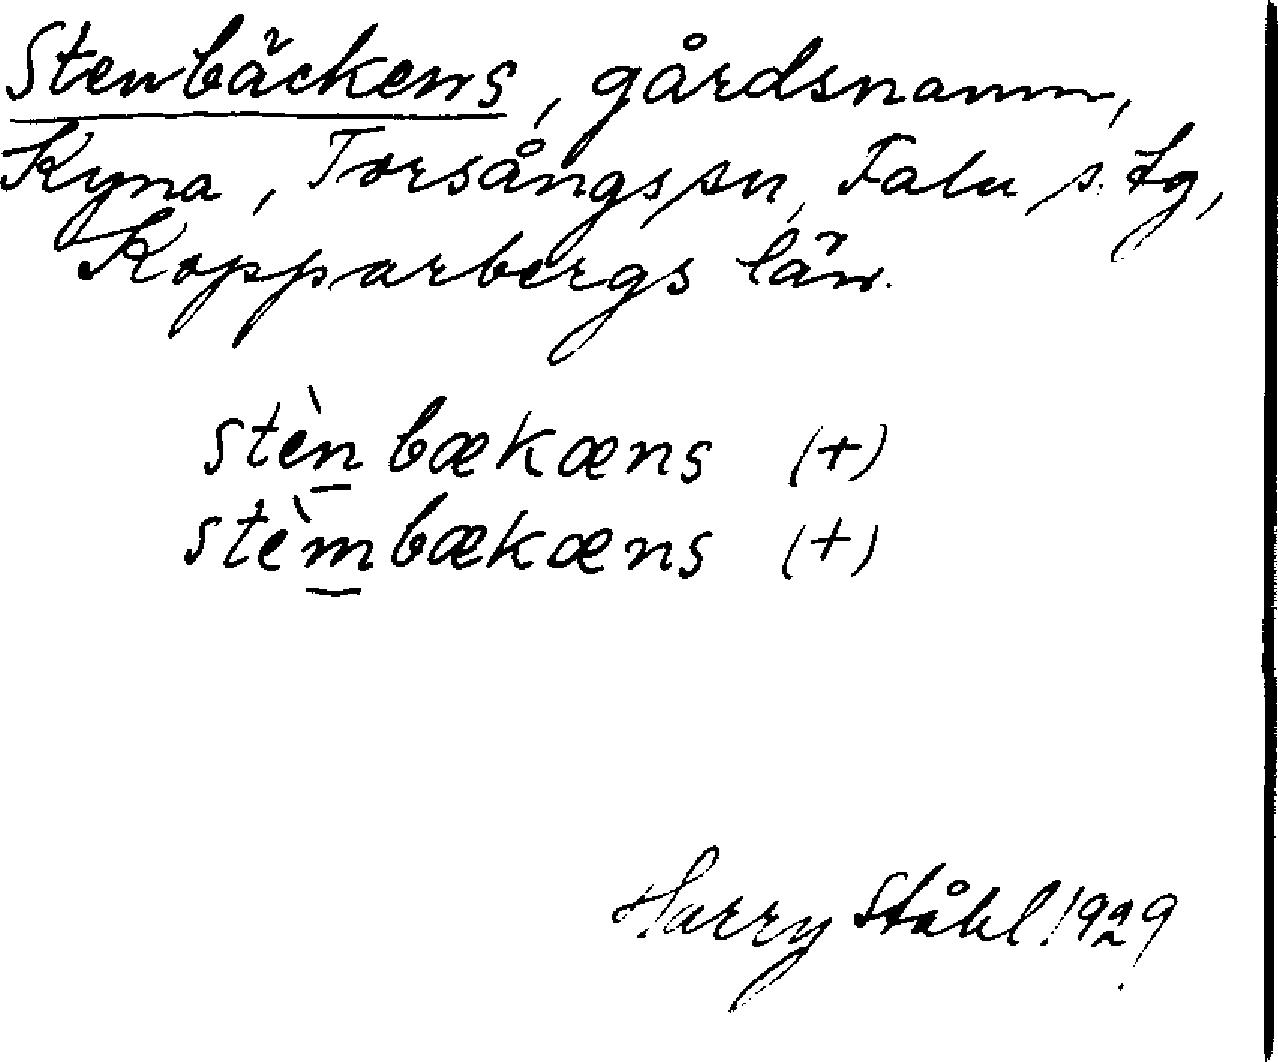 Stenbäckens, gårdsnamn,
Kyna, Torsångs sn, Falu s. tg,
Kopparbergs län.
stèn̲bækæns (+)
stèm̲bækæns (+)
Harry Ståhl 1929.